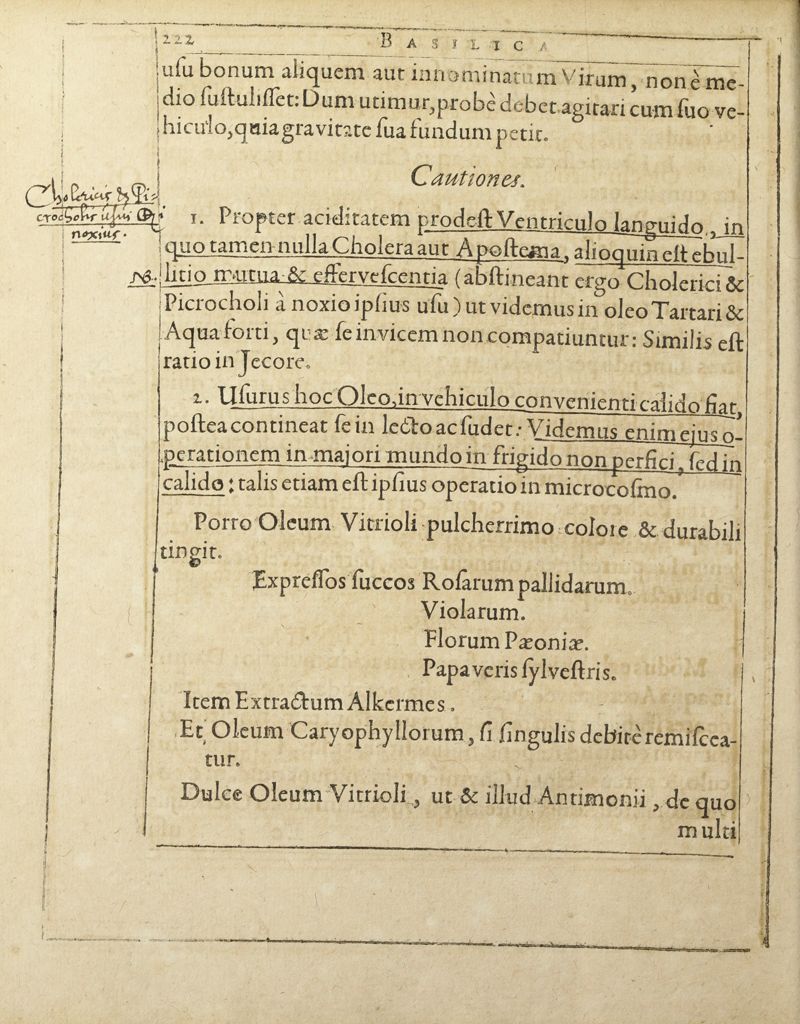 222 BASILICA
uſu bonum aliquem aut innominatum Virum, non è me-
dio ſuſtuliſſet: Dum utimur, probè debet agitari cum ſuo ve-
hiculo, quia gravitate ſua fundum petit.
Cautiones.
Cholericis & Pi-
crocholis uſus
noxius.
1. Propter aciditatem prodeſt Ventriculo languido, in
quo tamen nulla Cholera aut Apoſtema, alioquin eſt ebul-
NB.
litio mutua & efferveſcentia (abſtineant ergo Cholerici &
Picrocholi à noxio ipſius uſu) ut videmus in oleo Tartari &
Aqua forti, quæ ſe invicem non compatiuntur: Similis eſt
ratio in Jecore.
2. Uſurus hoc Oleo, in vehiculo convenienti calido fiat,
poſtea contineat ſe in lecto ac ſudet: Videmus enim ejus o-
perationem in majori mundo in frigido non perfici, ſed in
calido: talis etiam eſt ipſius operatio in microcoſmo.
Porro Oleum Vitrioli pulcherrimo colore & durabili
tingit.
Expreſſos ſuccos Roſarum pallidarum.
Violarum.
Florum Pæoniæ.
Papaveris ſylveſtris.
Item Extractum Alkermes.
Et Oleum Caryophyllorum, ſi ſingulis debitè remiſcea-
tur.
Dulce Oleum Vitrioli, ut & illud Antimonii, de quo
multi